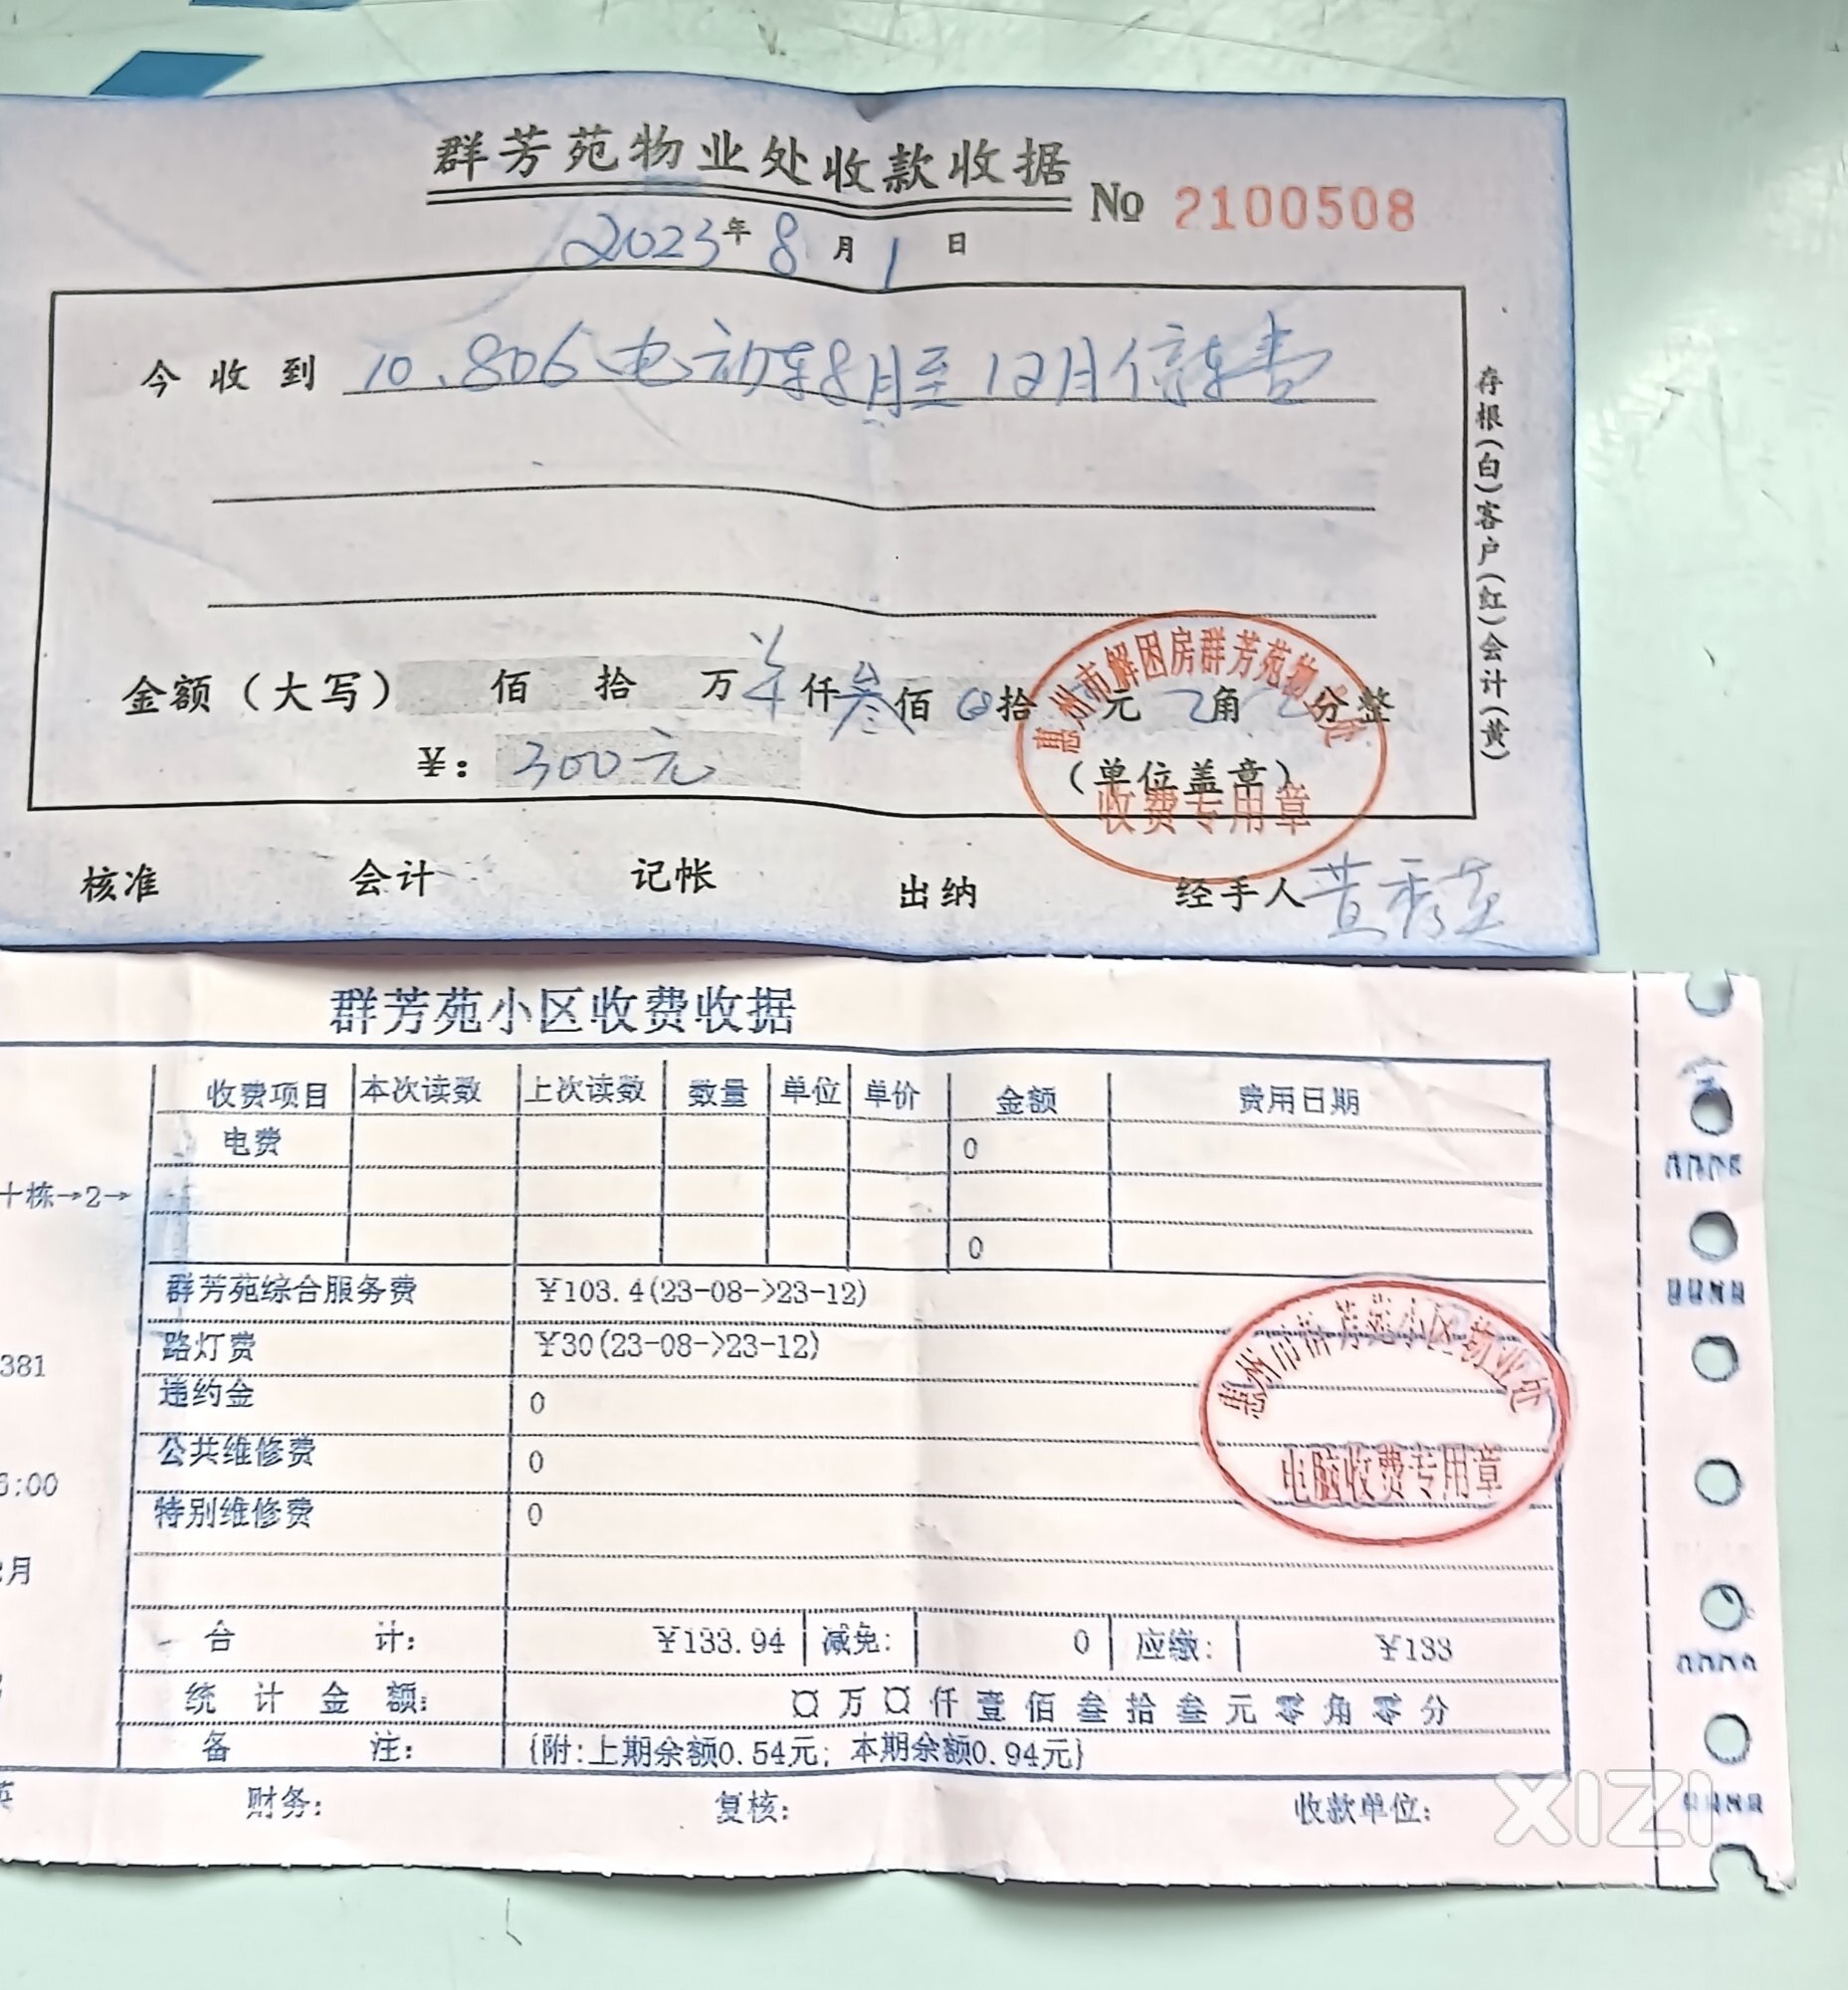 群芳苑物业处收款收据
No 2100508
2023年8月1日
今收到 10.806电动车8月至12月停车费
存根(白)客户(红)会计(黄)
金额(大写) 佰 拾 万 仟叁佰 拾 元 角 分整
¥: 300元
(单位盖章)
惠州市解困房群芳苑物业处
收费专用章
核准 会计 记帐 出纳 经手人 黄秀英
群芳苑小区收费收据
收费项目 本次读数 上次读数 数量 单位 单价 金额 费用日期
电费 0
十栋→2→
0
群芳苑综合服务费 ¥103.4(23-08->23-12)
路灯费 ¥30(23-08->23-12)
381
违约金 0
公共维修费 0
:00
特别维修费 0
月
惠州市群芳苑小区物业处
电脑收费专用章
合计: ¥133.94 减免: 0 应缴: ¥133
统计金额: ¤万¤仟壹佰叁拾叁元零角零分
备注: {附:上期余额0.54元; 本期余额0.94元}
英 财务: 复核: 收款单位:
XIZI